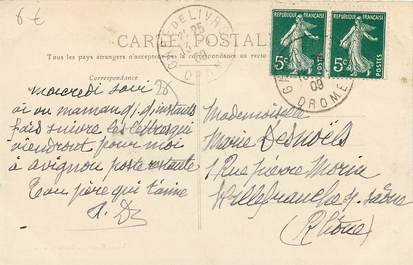 6 €
CARTE POSTALE
Tous les pays étrangers n'acceptent pas la correspondance au recto
Correspondance
REPUBLIQUE FRANÇAISE
5c
POSTES
REPUBLIQUE FRANÇAISE
5c
POSTES
DROME
09
mercredi soir
ai vu maman qq. instants
fais suivre les lettres qui
viendront pour moi
à avignon poste restante
Ton père qui t'aime
Mademoiselle
Marie Desnoëls
1 Rue pierre Morin
Villefranche s. saône
(Rhône)